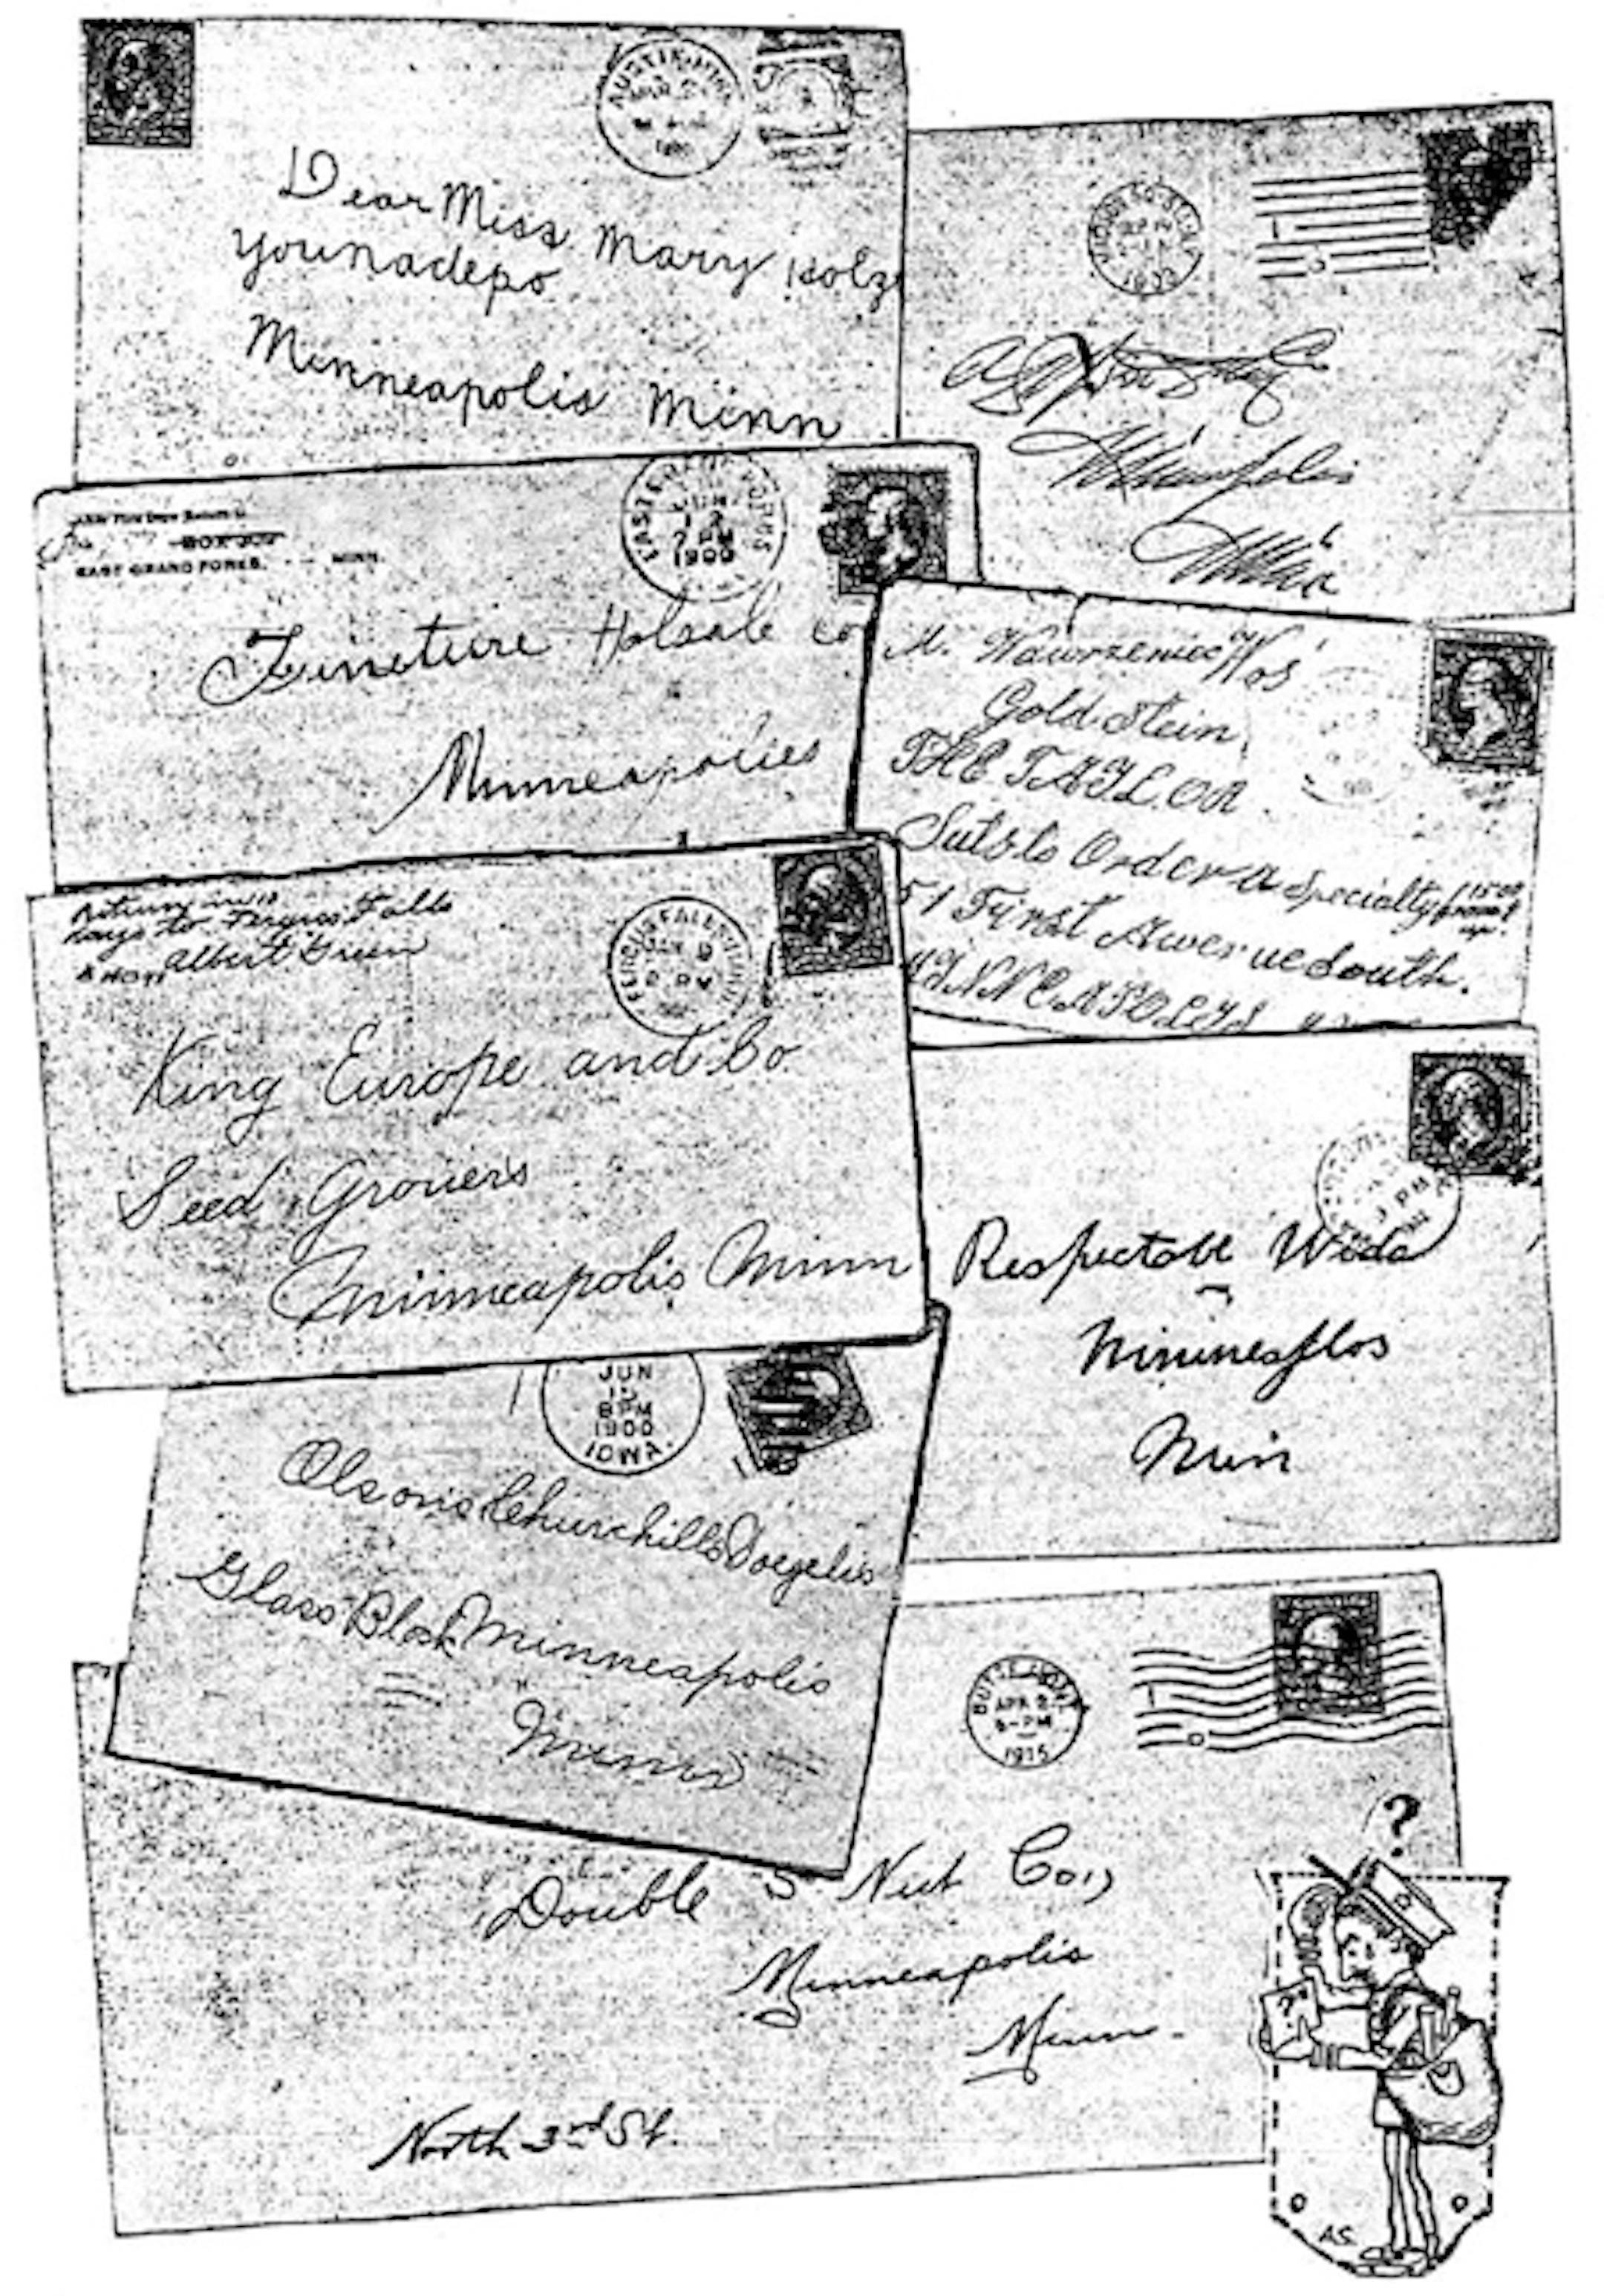 AUSTIN, MINN
MAR 2
Dear Miss Mary Holz
younadepo
Minneapolis Minn
1900
Minneapolis
Minn
BOX
EAST GRAND FORKS, - - MINN.
EAST GRAND FORKS
JUN
12
7 PM
1900
Firneture Holsale Co
Minneapolies
M. Wawrzeniec Wos
Gold stein
THE TAYLOR
Suts to Order a specialty from $15.00 up.
51 Fyrst Awenue South.
MYNNEAPOLYS
Return in 10
days to Fergus Falls
Albert Green
FERGUS FALLS, MINN
JAN 9
2 PM
King Europe and Co
Seed Growers
Minneapolis Minn
PM
Respectabl Wida
Nininesplos
Min
JUN
15
8 PM
1900
IOWA.
Olsons Churchills Doegelis
Glass Block Minneapolis
Minn
BUTTE, MONT.
APR 2
6-PM
1915
Double S Nut Co.,
Minneapolis
Minn.
North 3rd St.
?
?
A.S.